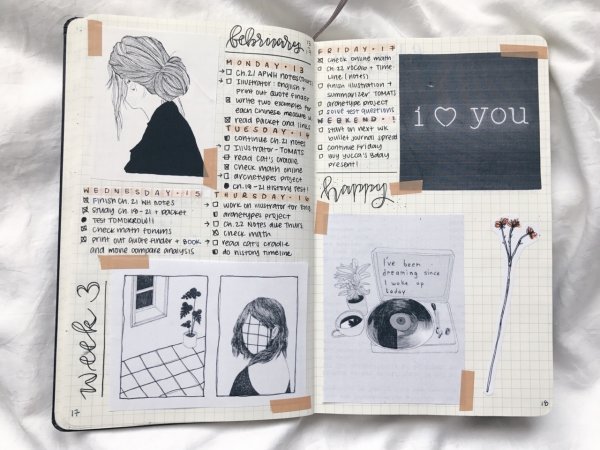 february
MONDAY • 13
Ch. 21 APWH notes
Illustrator: English +
print out quote finder
write two examples for
each Chinese measure w
read packet and links
TUESDAY • 14
continue Ch. 21 notes
Illustrator - TOMATS
read cat's cradle
Check math online
archetypes project
Ch. 19-21 History Test!
WEDNESDAY • 15
Finish Ch. 21 WH notes
Study Ch. 19-21 + packet
TEST TOMORROW!!
Check math forums
print out quote finder + BOOK
and movie compare analysis
THURSDAY • 16
work on illustrator for
archetypes project
Ch. 22 Notes due Thurs
check math
read cat's cradle
do history timeline
week 3
17
FRIDAY • 17
check online math
Ch. 22 vocab + time
line (notes)
finish illustration +
summarizer TOMATS
archetype project
solve test questions
WEEKEND • !
start on next wk
bullet journal spread
continue Friday
buy Yucca's bday
present!
i ♡ you
happy
I've been
dreaming since
I woke up
today
18